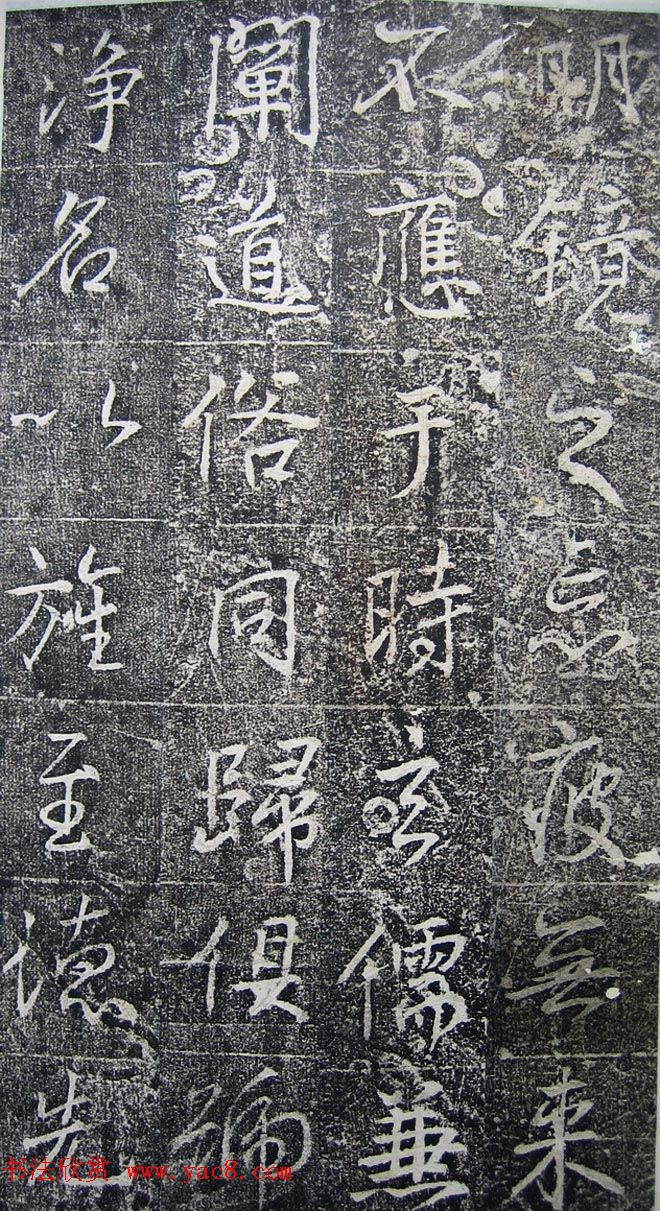 明鏡之忘疲無來
不應于時玄儒兼
闡道俗同歸俱號
淨名以旌至德先
书法欣赏 www.yac8.com